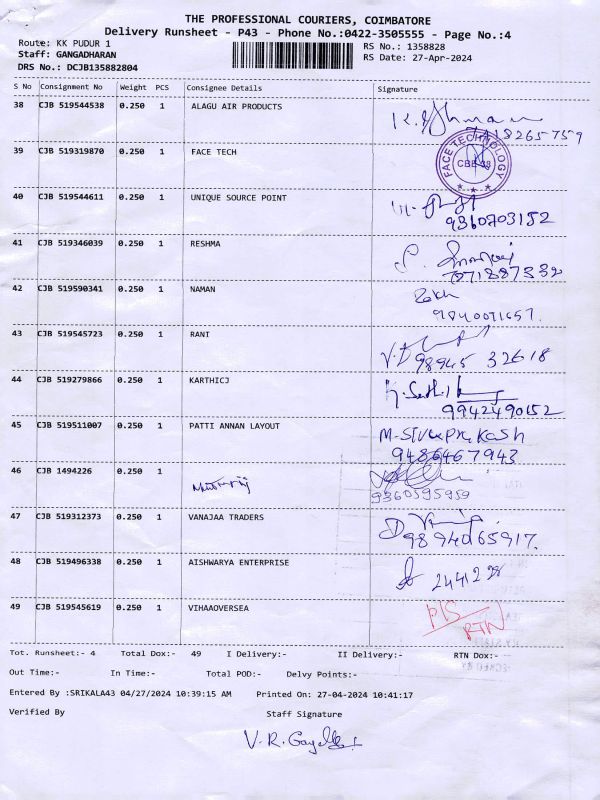 THE PROFESSIONAL COURIERS, COIMBATORE
Delivery Runsheet - P43 - Phone No.:0422-3505555 - Page No.:4
Route: KK PUDUR 1 RS No.: 1358828
Staff: GANGADHARAN RS Date: 27-Apr-2024
DRS No.: DCJB135882804
S No Consignment No Weight PCS Consignee Details Signature
38 CJB 519544538 0.250 1 ALAGU AIR PRODUCTS
39 CJB 519319870 0.250 1 FACE TECH FACE TECHNOLOGY
40 CJB 519544611 0.250 1 UNIQUE SOURCE POINT
9360703152
41 CJB 519346039 0.250 1 RESHMA
42 CJB 519590341 0.250 1 NAMAN
9840071657.
43 CJB 519545723 0.250 1 RANI
98945 32618
44 CJB 519279866 0.250 1 KARTHICJ
9942490152
45 CJB 519511007 0.250 1 PATTI ANNAN LAYOUT M-SIVAPRAKASH
9486467943
46 CJB 1494226 0.250 1
9360595959
47 CJB 519312373 0.250 1 VANAJAA TRADERS
9894065917.
48 CJB 519496338 0.250 1 AISHWARYA ENTERPRISE
49 CJB 519545619 0.250 1 VIHAAOVERSEA P/S
RTN
Tot. Runsheet:- 4 Total Dox:- 49 I Delivery:- II Delivery:- RTN Dox:-
Out Time:- In Time:- Total POD:- Delvy Points:-
Entered By :SRIKALA43 04/27/2024 10:39:15 AM Printed On: 27-04-2024 10:41:17
Verified By Staff Signature